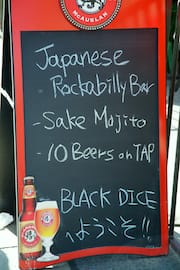 McAUSLAN
Japanese
Rockabilly Bar
- Sake Mojito
- 10 Beers on TAP
BLACK DICE
へようこそ!!